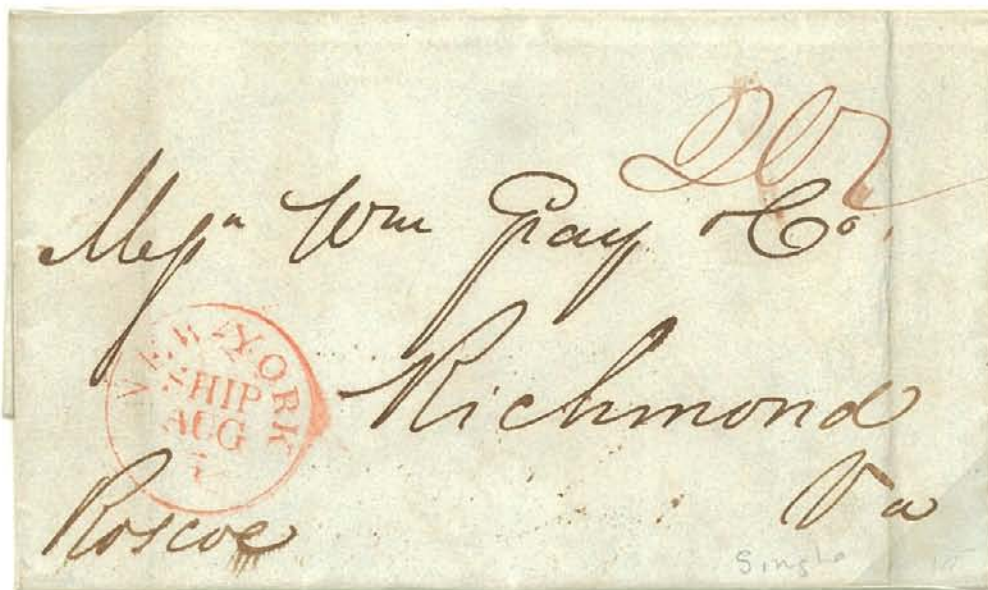 Messrs Wm Gray & Co.
Richmond
Va
NEW-YORK
SHIP
AUG
Roscoe
Single